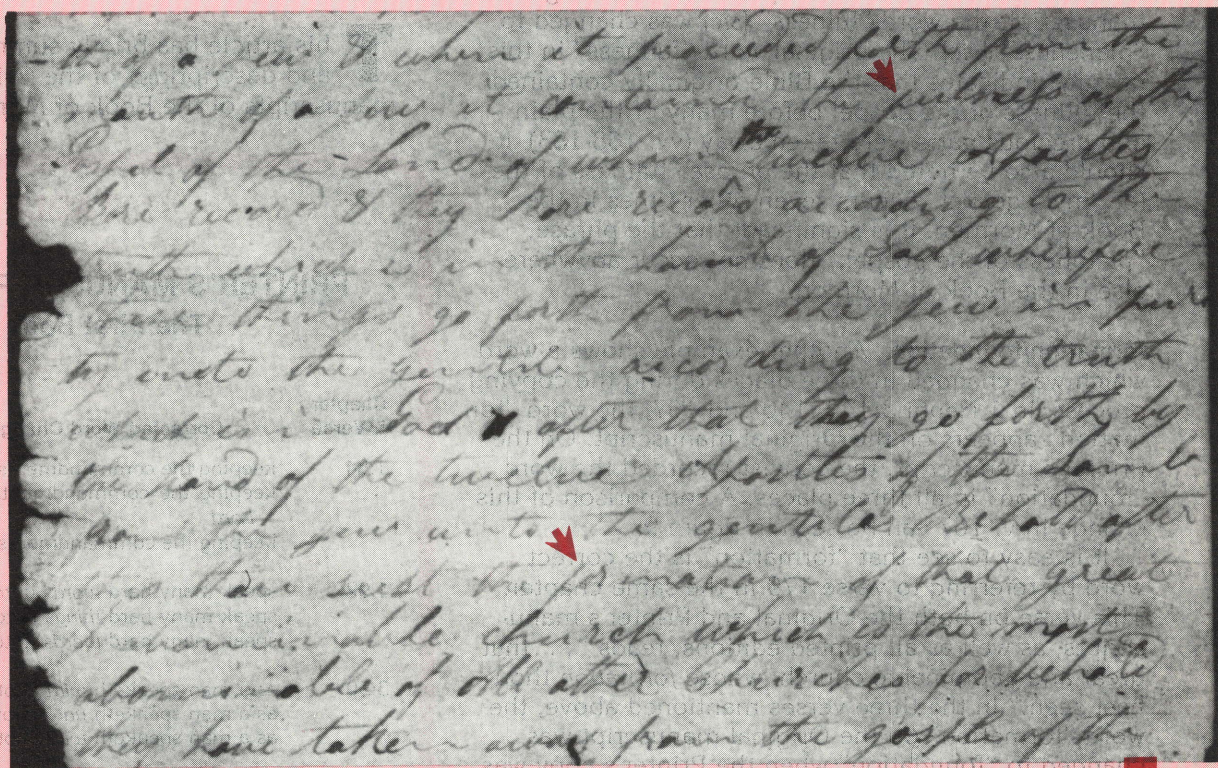 -th of a jew & when it proceeded forth from the
mouth of a jew it contained the fulness of the
gospel of the Land of whom the twelve apostles
bore record & they bore record according to the
truth which is in the Lamb of God wherefore
these things go forth from the jew in puri
ty unto the gentile according to the truth
which is in God & after that they go forth by
the hand of the twelve apostles of the Lamb
from the jew unto the gentiles Behold after
this thou seest the formation of that great
abominable church which is the most
abominable of all other Churches for behold
they have taken away from the gosple of the